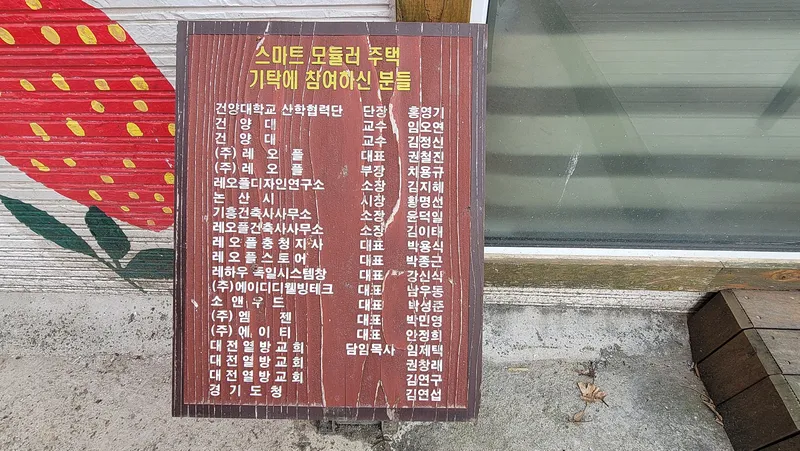 스마트 모듈러 주택
기탁에 참여하신 분들
건양대학교 산학협력단 단장 홍영기
건 양 대 교수 임오연
건 양 대 교수 김정신
(주) 레 오 플 대표 권철진
(주) 레 오 플 부장 차용규
레오플디자인연구소 소장 김지혜
논 산 시 시장 황명선
기흥건축사사무소 소장 윤덕일
레오플건축사사무소 소장 김이태
레 오 플 충 청 지 사 대표 박용식
레 오 플 스 토 어 대표 박종근
레하우 독일시스템창 대표 강신식
(주)에이디디웰빙테크 대표 남우동
소 앤 우 드 대표 박성준
(주) 엠 젠 대표 박민영
(주) 에 이 티 대표 안정희
대 전 열 방 교 회 담임목사 임제택
대 전 열 방 교 회 권창래
대 전 열 방 교 회 김연구
경 기 도 청 김연섭